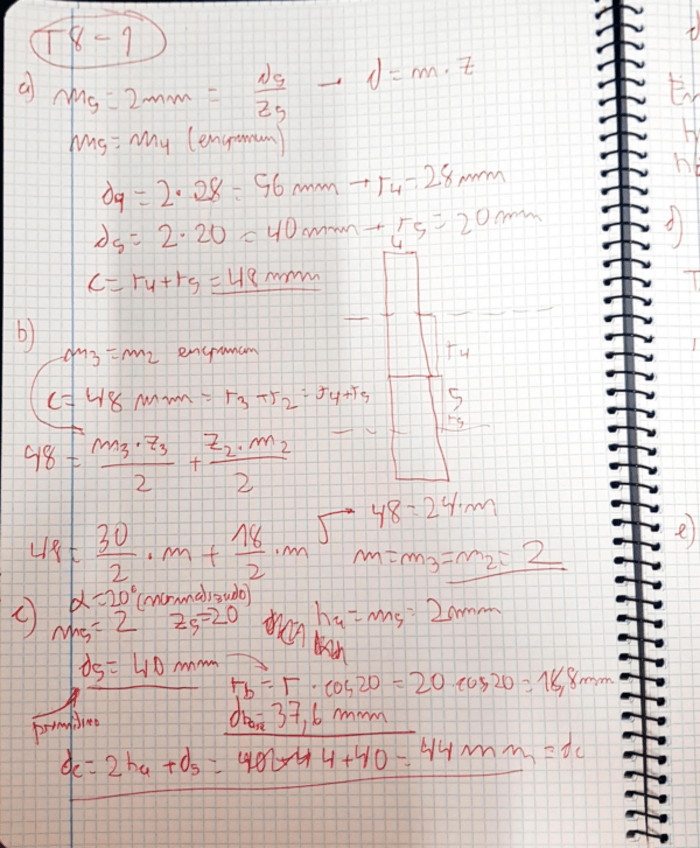 T 8-1
a) m5 = 2mm = d5/z5 → d = m · z
m5 = m4 (engranan)
d4 = 2 · 28 = 56 mm → r4 = 28 mm
d5 = 2 · 20 = 40 mm → r5 = 20 mm
c = r4 + r5 = 48 mm
4
r4
5
r5
b)
m3 = m2 engranan
c = 48 mm = r3 + r2 = r4 + r5
48 = m3 · z3/2 + z2 · m2/2
48 = 30/2 · m + 18/2 · m
48 = 24 · m
m = m3 = m2 = 2
α = 20° (normalizado)
c) m5 = 2 z5 = 20 ha = m5 = 2mm
d5 = 40 mm
primitivo
rb = r · cos20 = 20 · cos20 = 18,8mm
dbase = 37,6 mm
dc = 2ha + d5 = 4 + 40 = 44 mm = dc
d)
e)